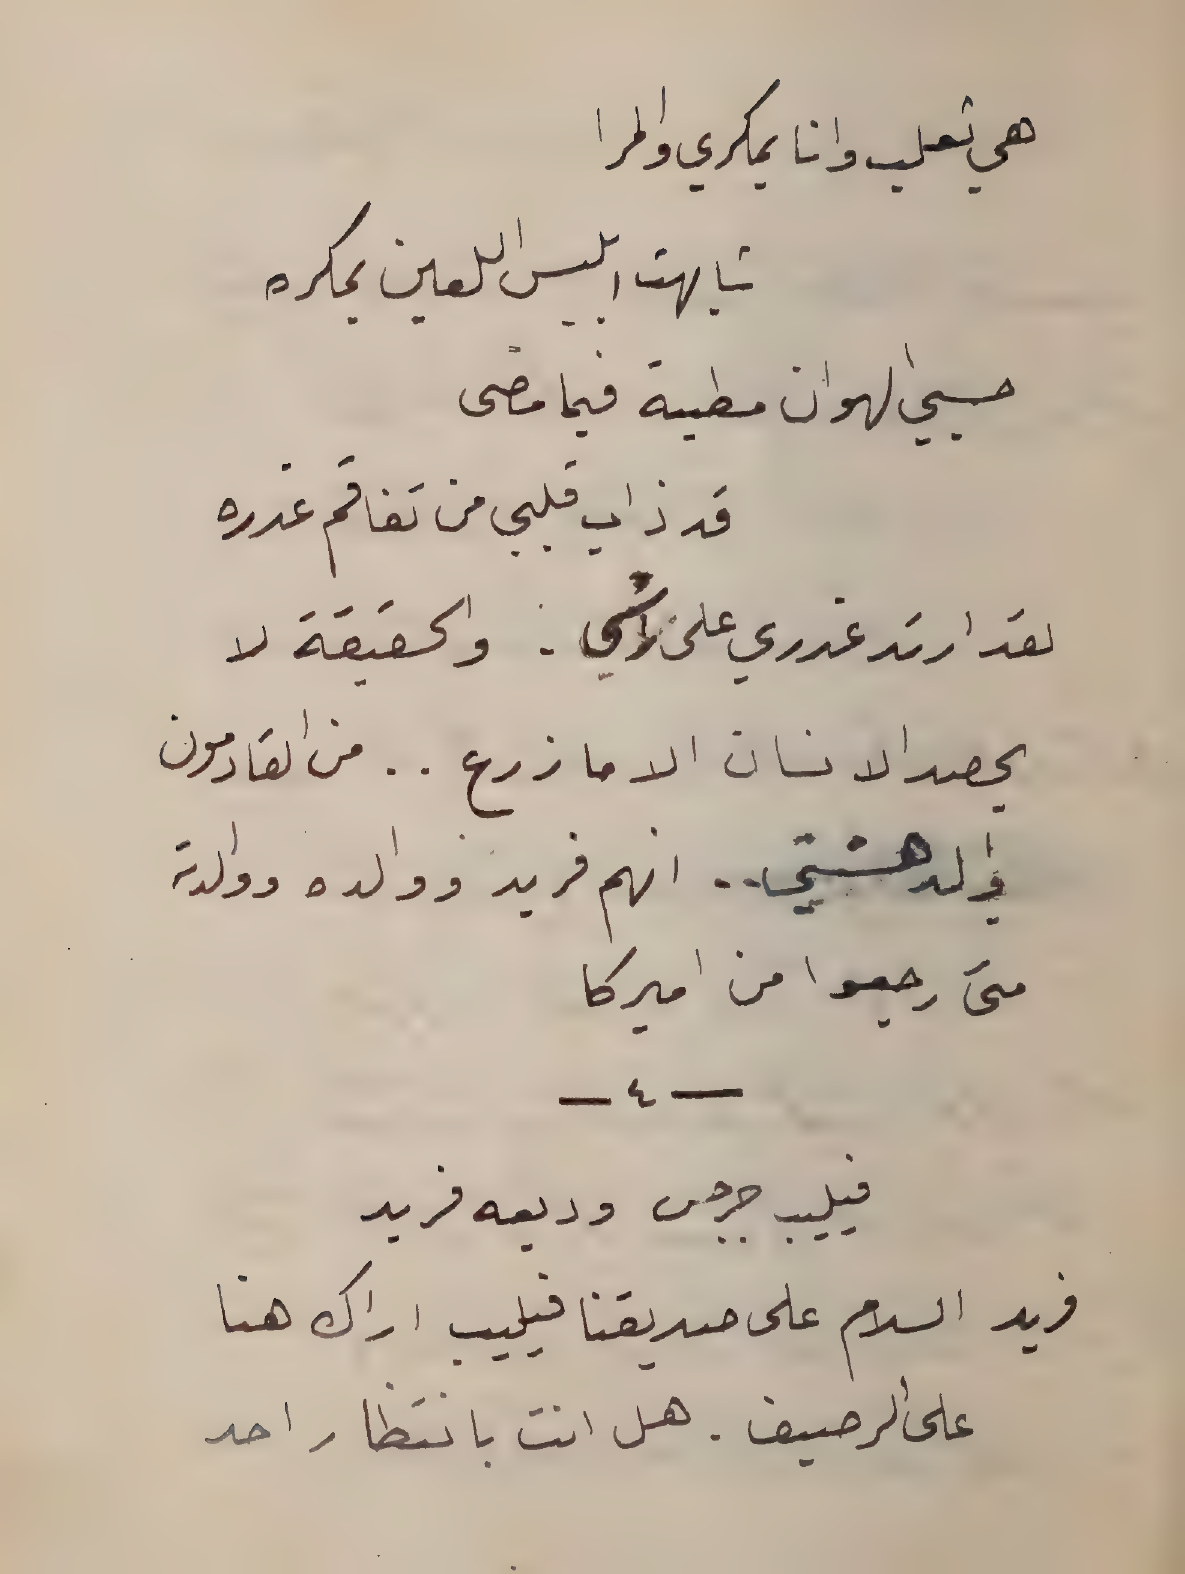 هي ثعلب وانا بمكري والمرا
شابهت ابليس اللعين بمكره
حسبي الهوان مطية فيما مضى
قد ذاب قلبي من تفاقم غدره
لقد ارتد غدري على رأسي . والحقيقة لا
يحصد الانسان الا ما زرع .. من القادمون
انهم فريد ووالده ووالدته
متى رجعوا من اميركا
— ٤ —
فيليب جرجس وديعه فريد
فريد السلام على صديقنا فيليب اراك هنا
على الرصيف . هل انت بانتظار احد